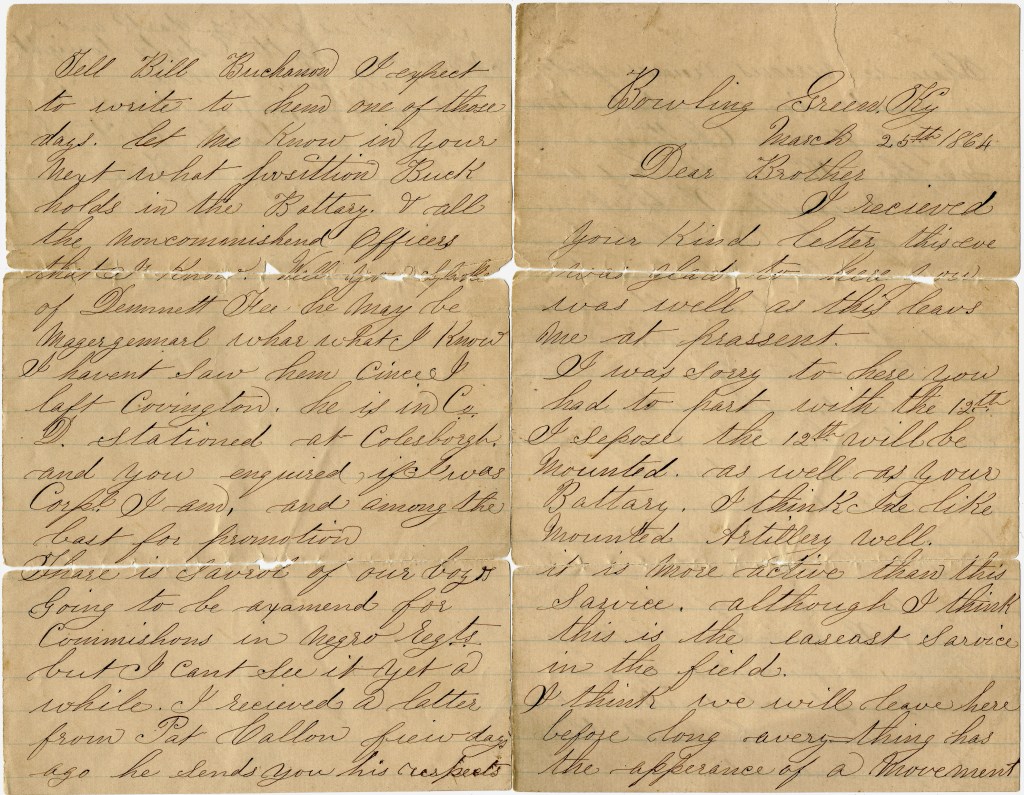 Bowling Green. Ky
March 25th 1864
Dear Brother
I recieved
your kind letter this eve
was glad to here you
was well as this leavs
me at prassent.
I was sorry to here you
had to part with the 12th.
I sepose the 12th will be
mounted. as well as your
Battary. I think Ide like
mounted Artillery well.
it is more active than this
sarvice. although I think
this is the easeast sarvice
in the field.
I think we will leave here
before long avery thing has
the apperance of a movement
Tell Bill Buchanon I expect
to write to hem one of those
days. let me know in your
next what posittion Buck
holds in the Battary. & all
the noncommishend Officers
that I know.
of Demmett Fee he may be
Magergennarl whar what I know
I havent saw hem cince I
laft Covington. he is in Co.
D. stationed at Colesborgh.
and you enquired if I was
Corpl. I am, and among the
bast for promotion
Thare is savrol of our boys
going to be axamend for
Commishons in negro Regts.
but I cant see it yet a
while. I recieved a latter
from Pat Callon fiew days
ago he sends you his respects